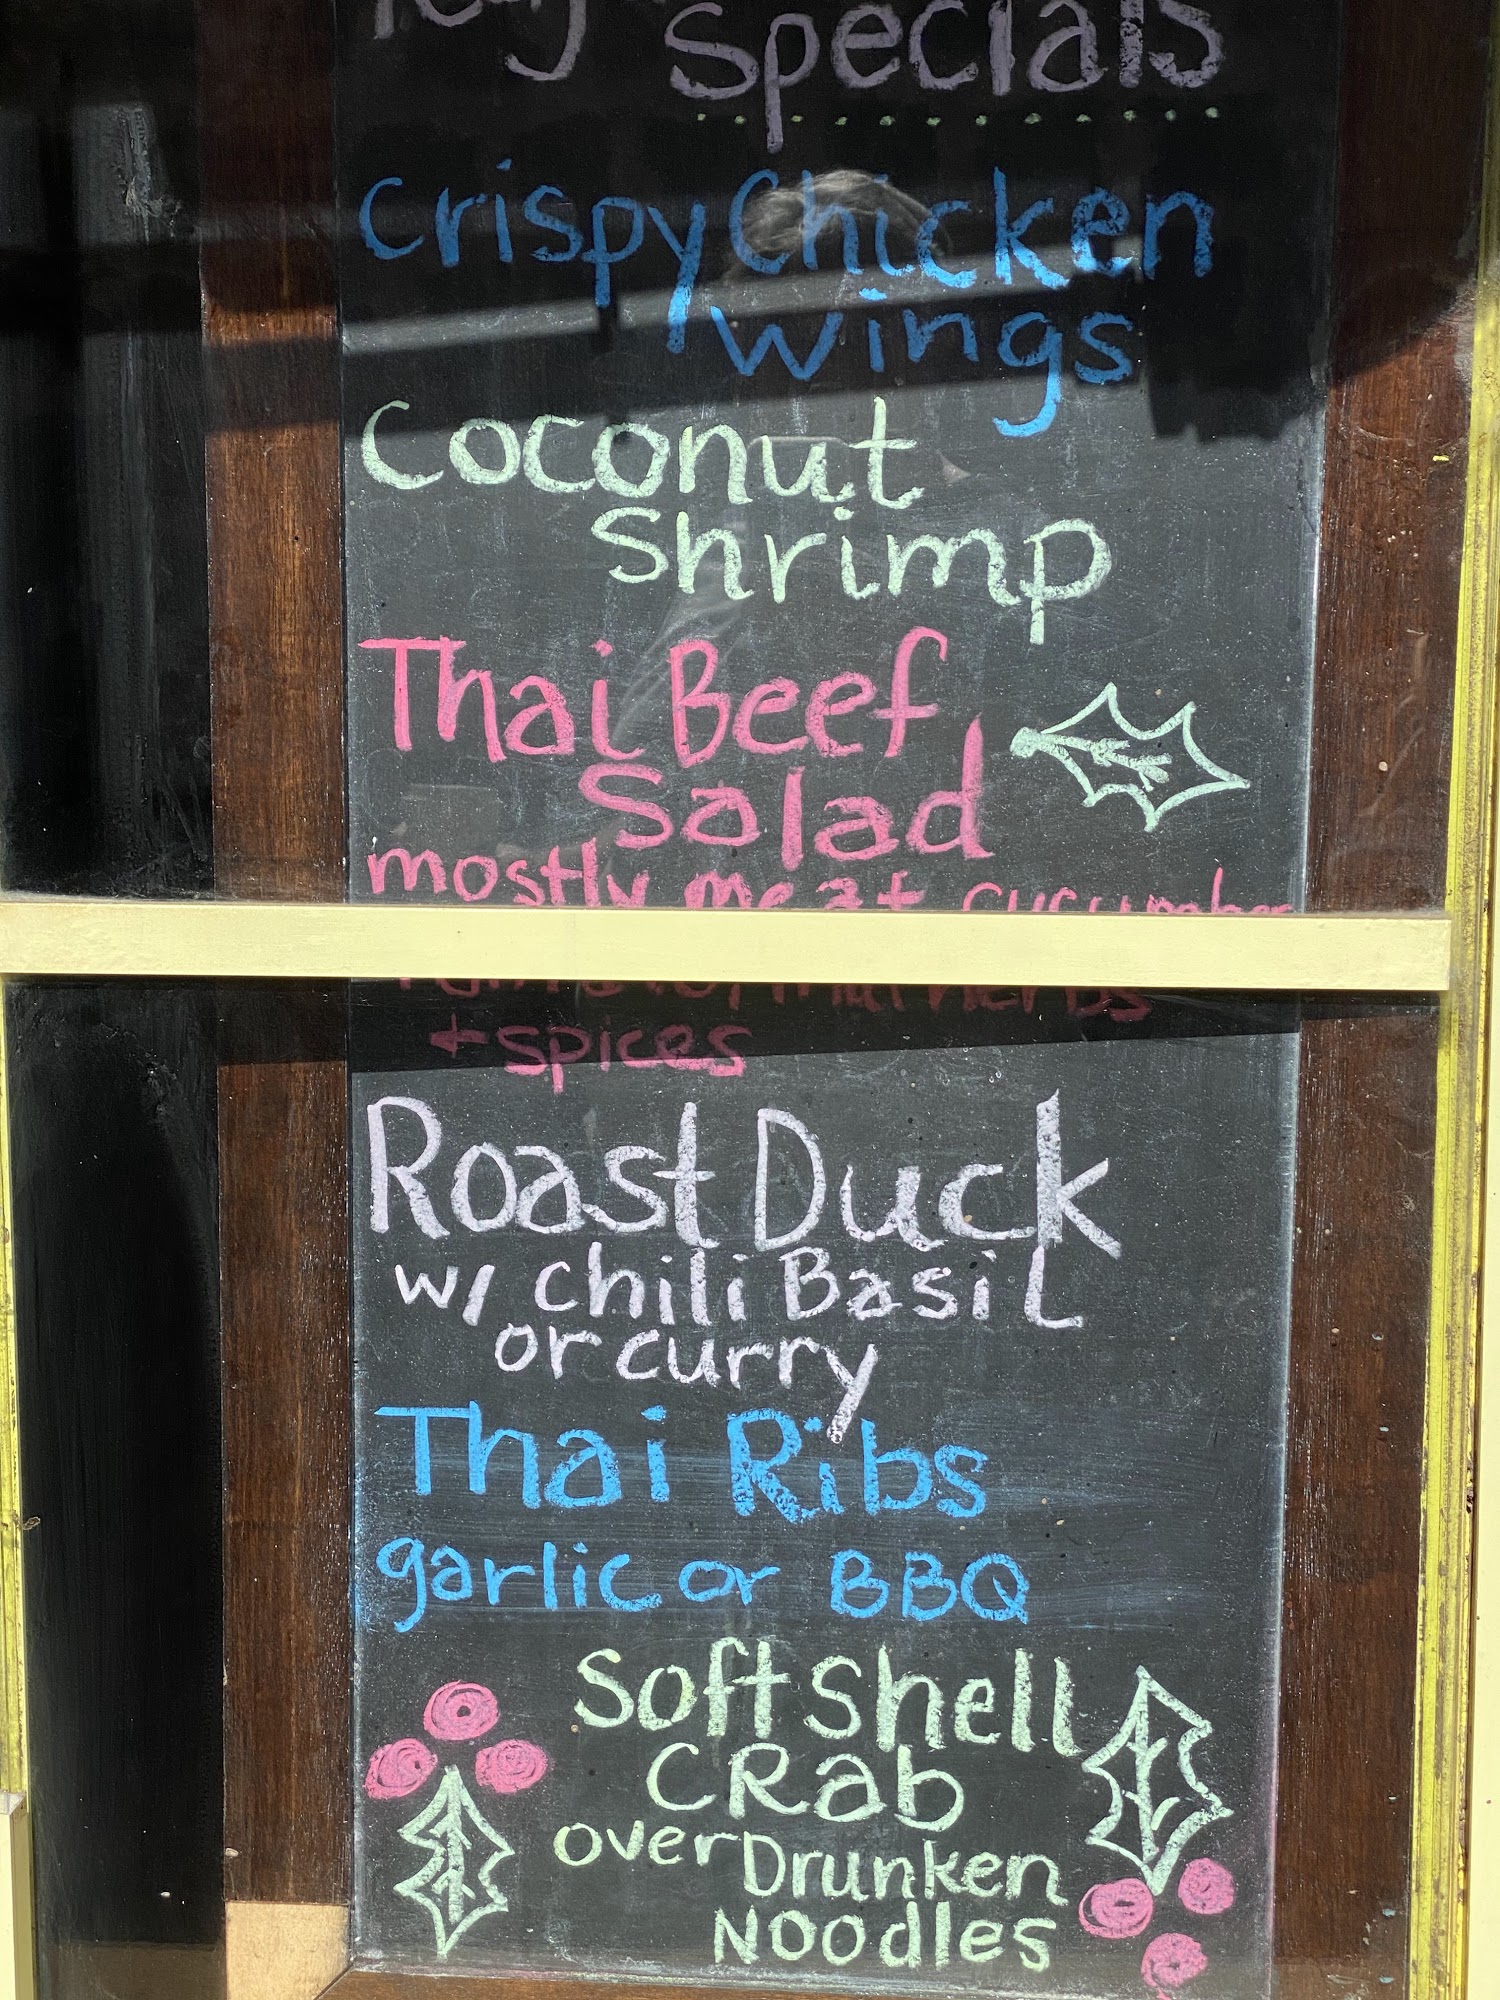 Specials
Crispy Chicken
wings
Coconut
Shrimp
Thai Beef
Salad
mostly meat cucumber
+ spices
Roast Duck
w/ chili Basil
or curry
Thai Ribs
garlic or BBQ
Soft Shell
CRab
over Drunken
Noodles